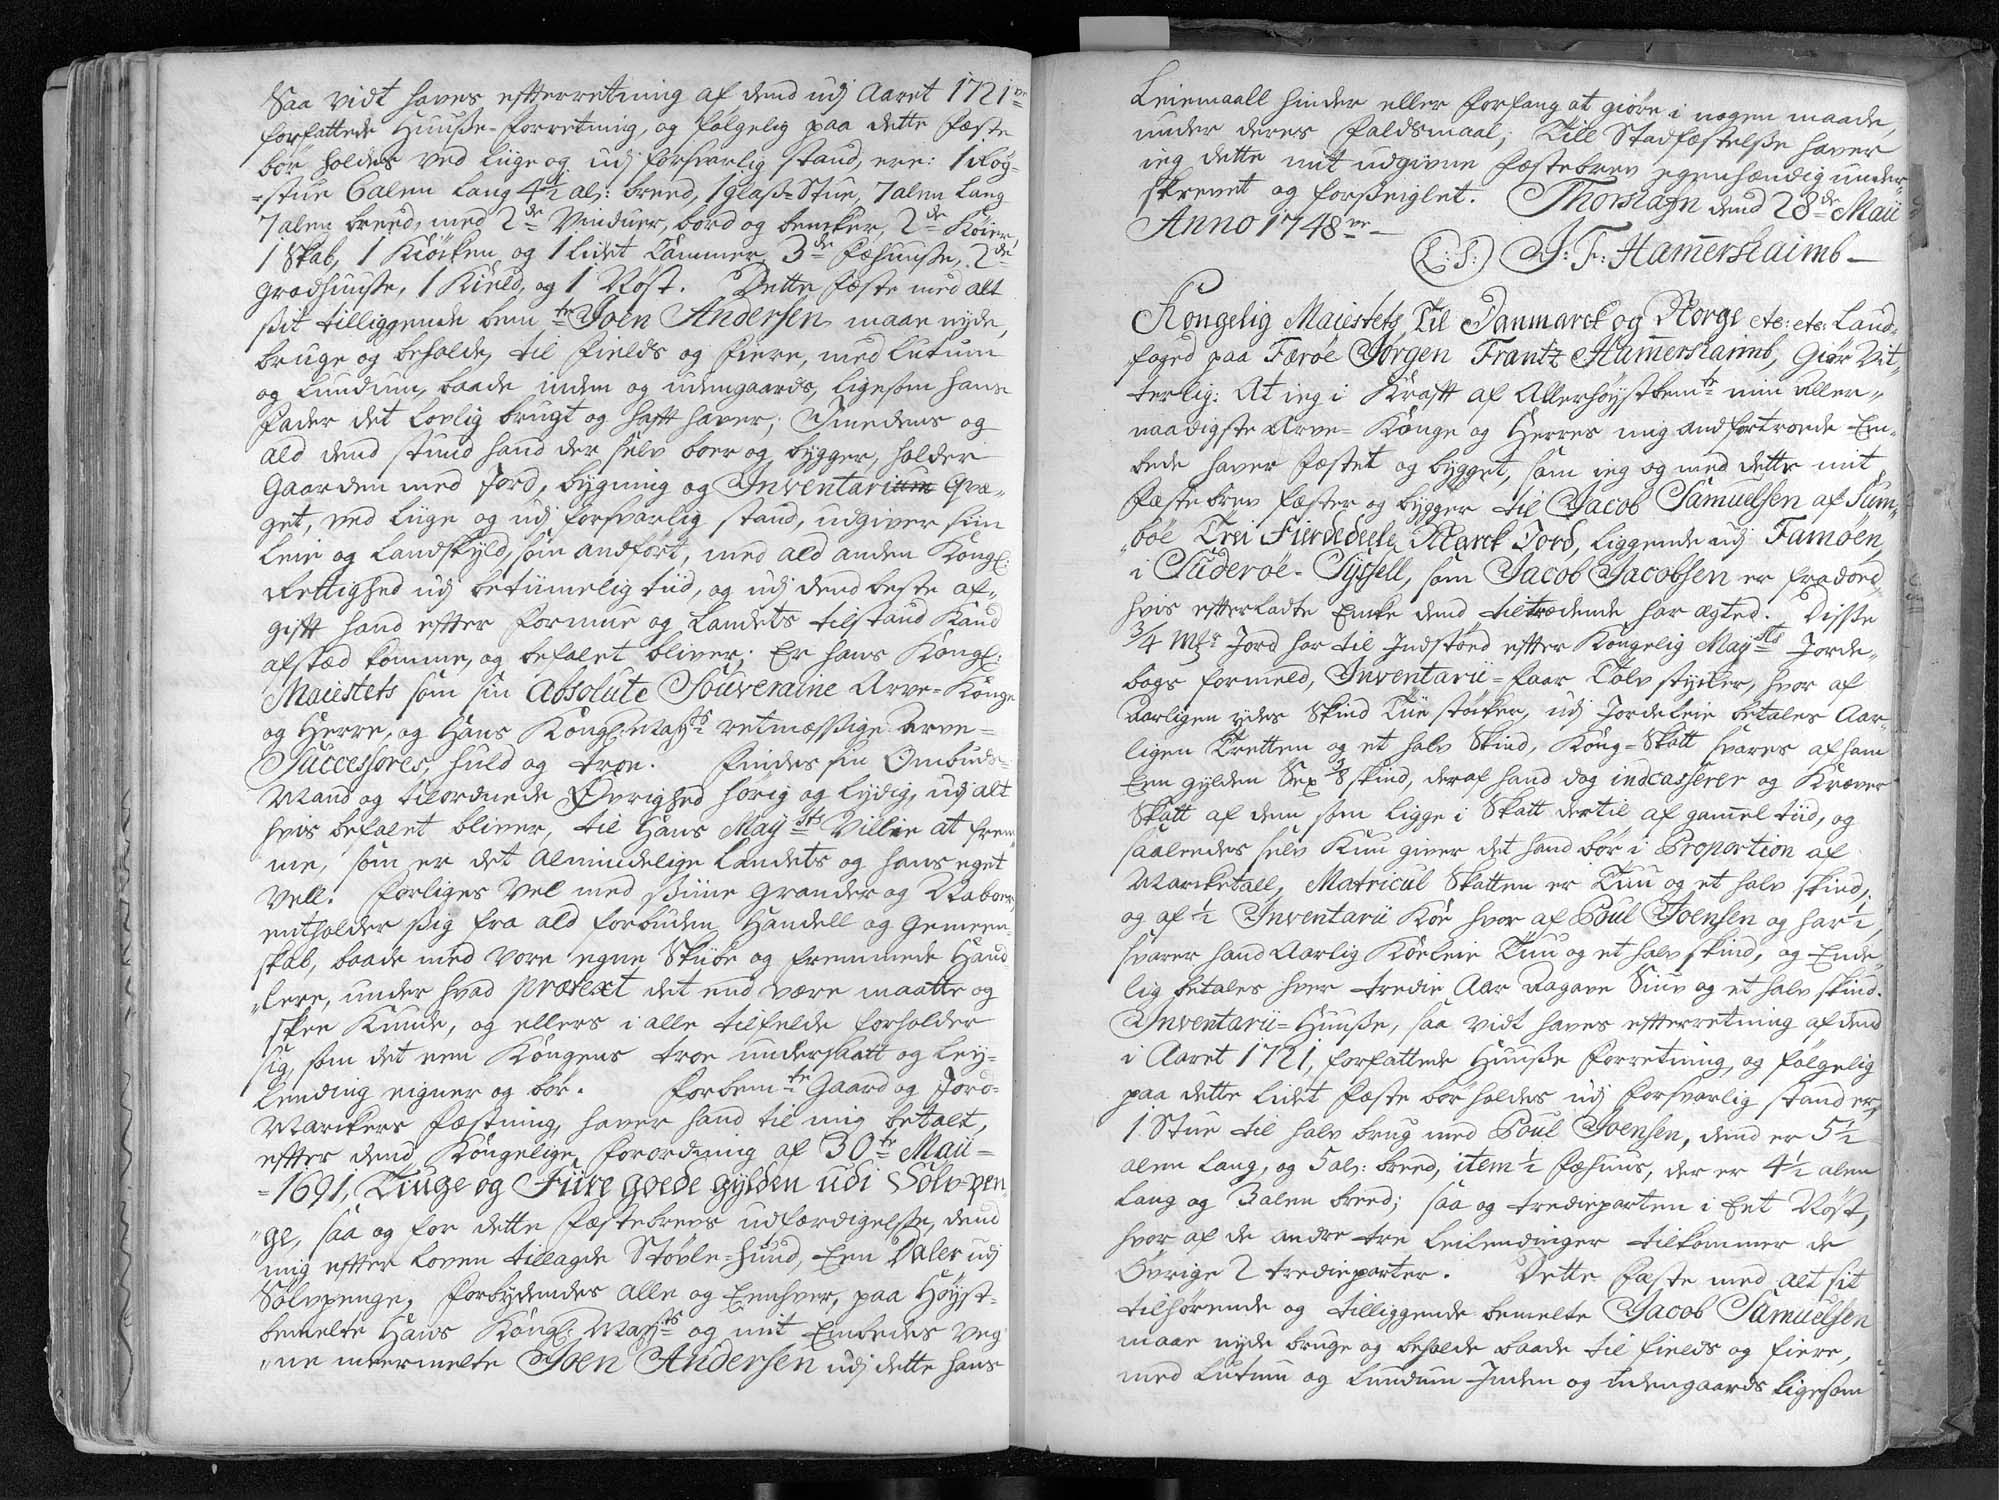 Saa vidt haves effterretning af dend udj Aaret 1721ve
forfattede Huuße-forretning, og følgelig paa dette fæste
bør holdes ved liige og udj forsvarlig stand, ere: 1 Røg-
=stue 6 alen lang 4½ al: breed, 1 glaß-Stue, 7 alen lang
7 alen breed, med 2de Vinduer, bord og bencker, 2de Køier
1 Skab, 1 Kiöcken og 1 lidet Cammer, 3de fæhuuße, 2de
grødhuuße, 1 Kield, og 1 Nöst. Dette fæste med alt
sit tilliggende bemte Joen Andersen maae nyde,
bruge og beholde, til fields og fiere, med lutum
og Lundum, baade inden og udengaards, ligesom hans
fader det lovlig brugt og hafft haver; Imedens og
ald dend stund hand der selv boer og bygger, holder
Gaarden med Jord, bygning og Inventarium Qvæ„
get, ved liige og udj forsvarlig stand, udgiver sin
Leie og Landskyld, som andført, med ald anden Kongl:
Rettighed udj betiimelig tiid, og udj dend beste af„
gifft hand effter formue og Landets tilstand kand
afsted komme, og befalet bliver; Er hans Kongl:
Maiestets som sin Absolute Souveraine Arve-Konge
og Herre, og Hans Kongl: Mayts retmæssige Arve-
Successores, huld og troe. Findes sin Ombuds-
Mand og tilordnede Øvrighed hörig og lydig, udj alt
hvis befalet bliver, til Hans Mayts Villie at frem„
me, som er det Almindelige Landets og hans eget
Vell. Forliges vel med sine Grander og Naboer,
entholder sig fra ald forbuden Handell og gemeen„
skab, baade med vore egne Skibe og fremmede Hand„
„lere, under hvad prætext det end være maatte og
skee kunde, og ellers i alle tilfelde forholder
sig, som det een Kongens troe undersaatt og Ley-
lending eigner og bör. Forbemte Gaard og Jord-
Marckers fæstning, haver hand til mig betalt,
effter dend Kongelige Forordning af 30te Maii-
=1691, Tiuge og Fiire goede gylden udi Sölv-pen„
„ge, saa og for dette fæstebrevs udfærdigelße, dend
mig effter loven tillagde Stövle-hund, Een Daler udj
Sölvpenge, forbydendes alle og Eenhver, paa Höyst-
bemelte Hans Kongl: Mayts og mit Embedes veg„
„ne meermelte Joen Andersen udj dette hans
Leiemaall hinder eller forfang at giøre i nogen maade,
under deres faldsmaal; Till Stadfæstelße haver
ieg dette mit udgivne fæstebrev egenhændig under„
skrevet og forßeiglet. Thorshafn dend 28de Maii
Anno 1748ve—
(L:S:) J: F: Hamershaimb—
Kongelig Maiestets Til Danmarck og Norge etc: etc: Land-
foged paa Færöe Jörgen Frantz Hamershaimb, Giör Vit„
terlig: At ieg i Krafft af Allerhöystbemte min Aller„
naadigste Arve- Konge og Herres mig andfortroede Em„
bede haver fæstet og bygget, som ieg og med dette mit
fæstebrev fæster og bygger til Jacob Samuelsen af Sum„
„böe Trei Fierdedeele Marck Jord, liggende udj Famöen,
i Suderöe-Sÿssell, som Jacob Jacobsen er fradöed,
hvis efterladte Encke dend tiltrædende har ægted. Disse
¾ Mk: Jord har til Indstöed effter Kongelig Mayts Jorde„
bogs formeld, Inventarii-faar Tolv stycker, hvor af
Aarligen ydes Skind Tiie stöcker, udj Jordeleie betales Aar„
ligen Tretten og et halv Skind, Kong-Skatt svares af ham
Een gylden Sex ⅜ skind, deraf hand dog indcasserer og Kræver
Skatt af dem som ligge i Skatt dertil af gamel tiid, og
saaleedes selv kun giver det hand bör i Proportion af
Marcketall, Matricul Skatten er Tuu og et halv skind,
og af ½ Inventarii Köe hvor af Poul Joensen og har ½,
svarer hand Aarlig Köeleie Tuu og et halv skind, og Ende„
lig betales hver tredie Aar Ragave Siuv og et halv skind.
Inventarii-Huuße, saa vidt haves effterretning af dend
i Aaret 1721, forfattede Huuße forretning, og fölgelig
paa dette lidet fæste bör holdes udj forsvarlig stand er,
1 Stue til halv brug med Poul Joensen, dend er 5½
alen lang, og 5 al: breed, item ½ fæhuus, der er 4½ alen
lang og 3 alen breed; saa og trediparten i Eet Nöst,
hvor af de andre tre Leilendinger tilkommer de
Övrige 2 tredieparter. Dette fæste med alt sit
tilhörende og tilliggende bemelte Jacob Samuelsen
maae nyde bruge og beholde baade til fields og fiere,
med Lutum og Lundum Inden og udengaards ligesom